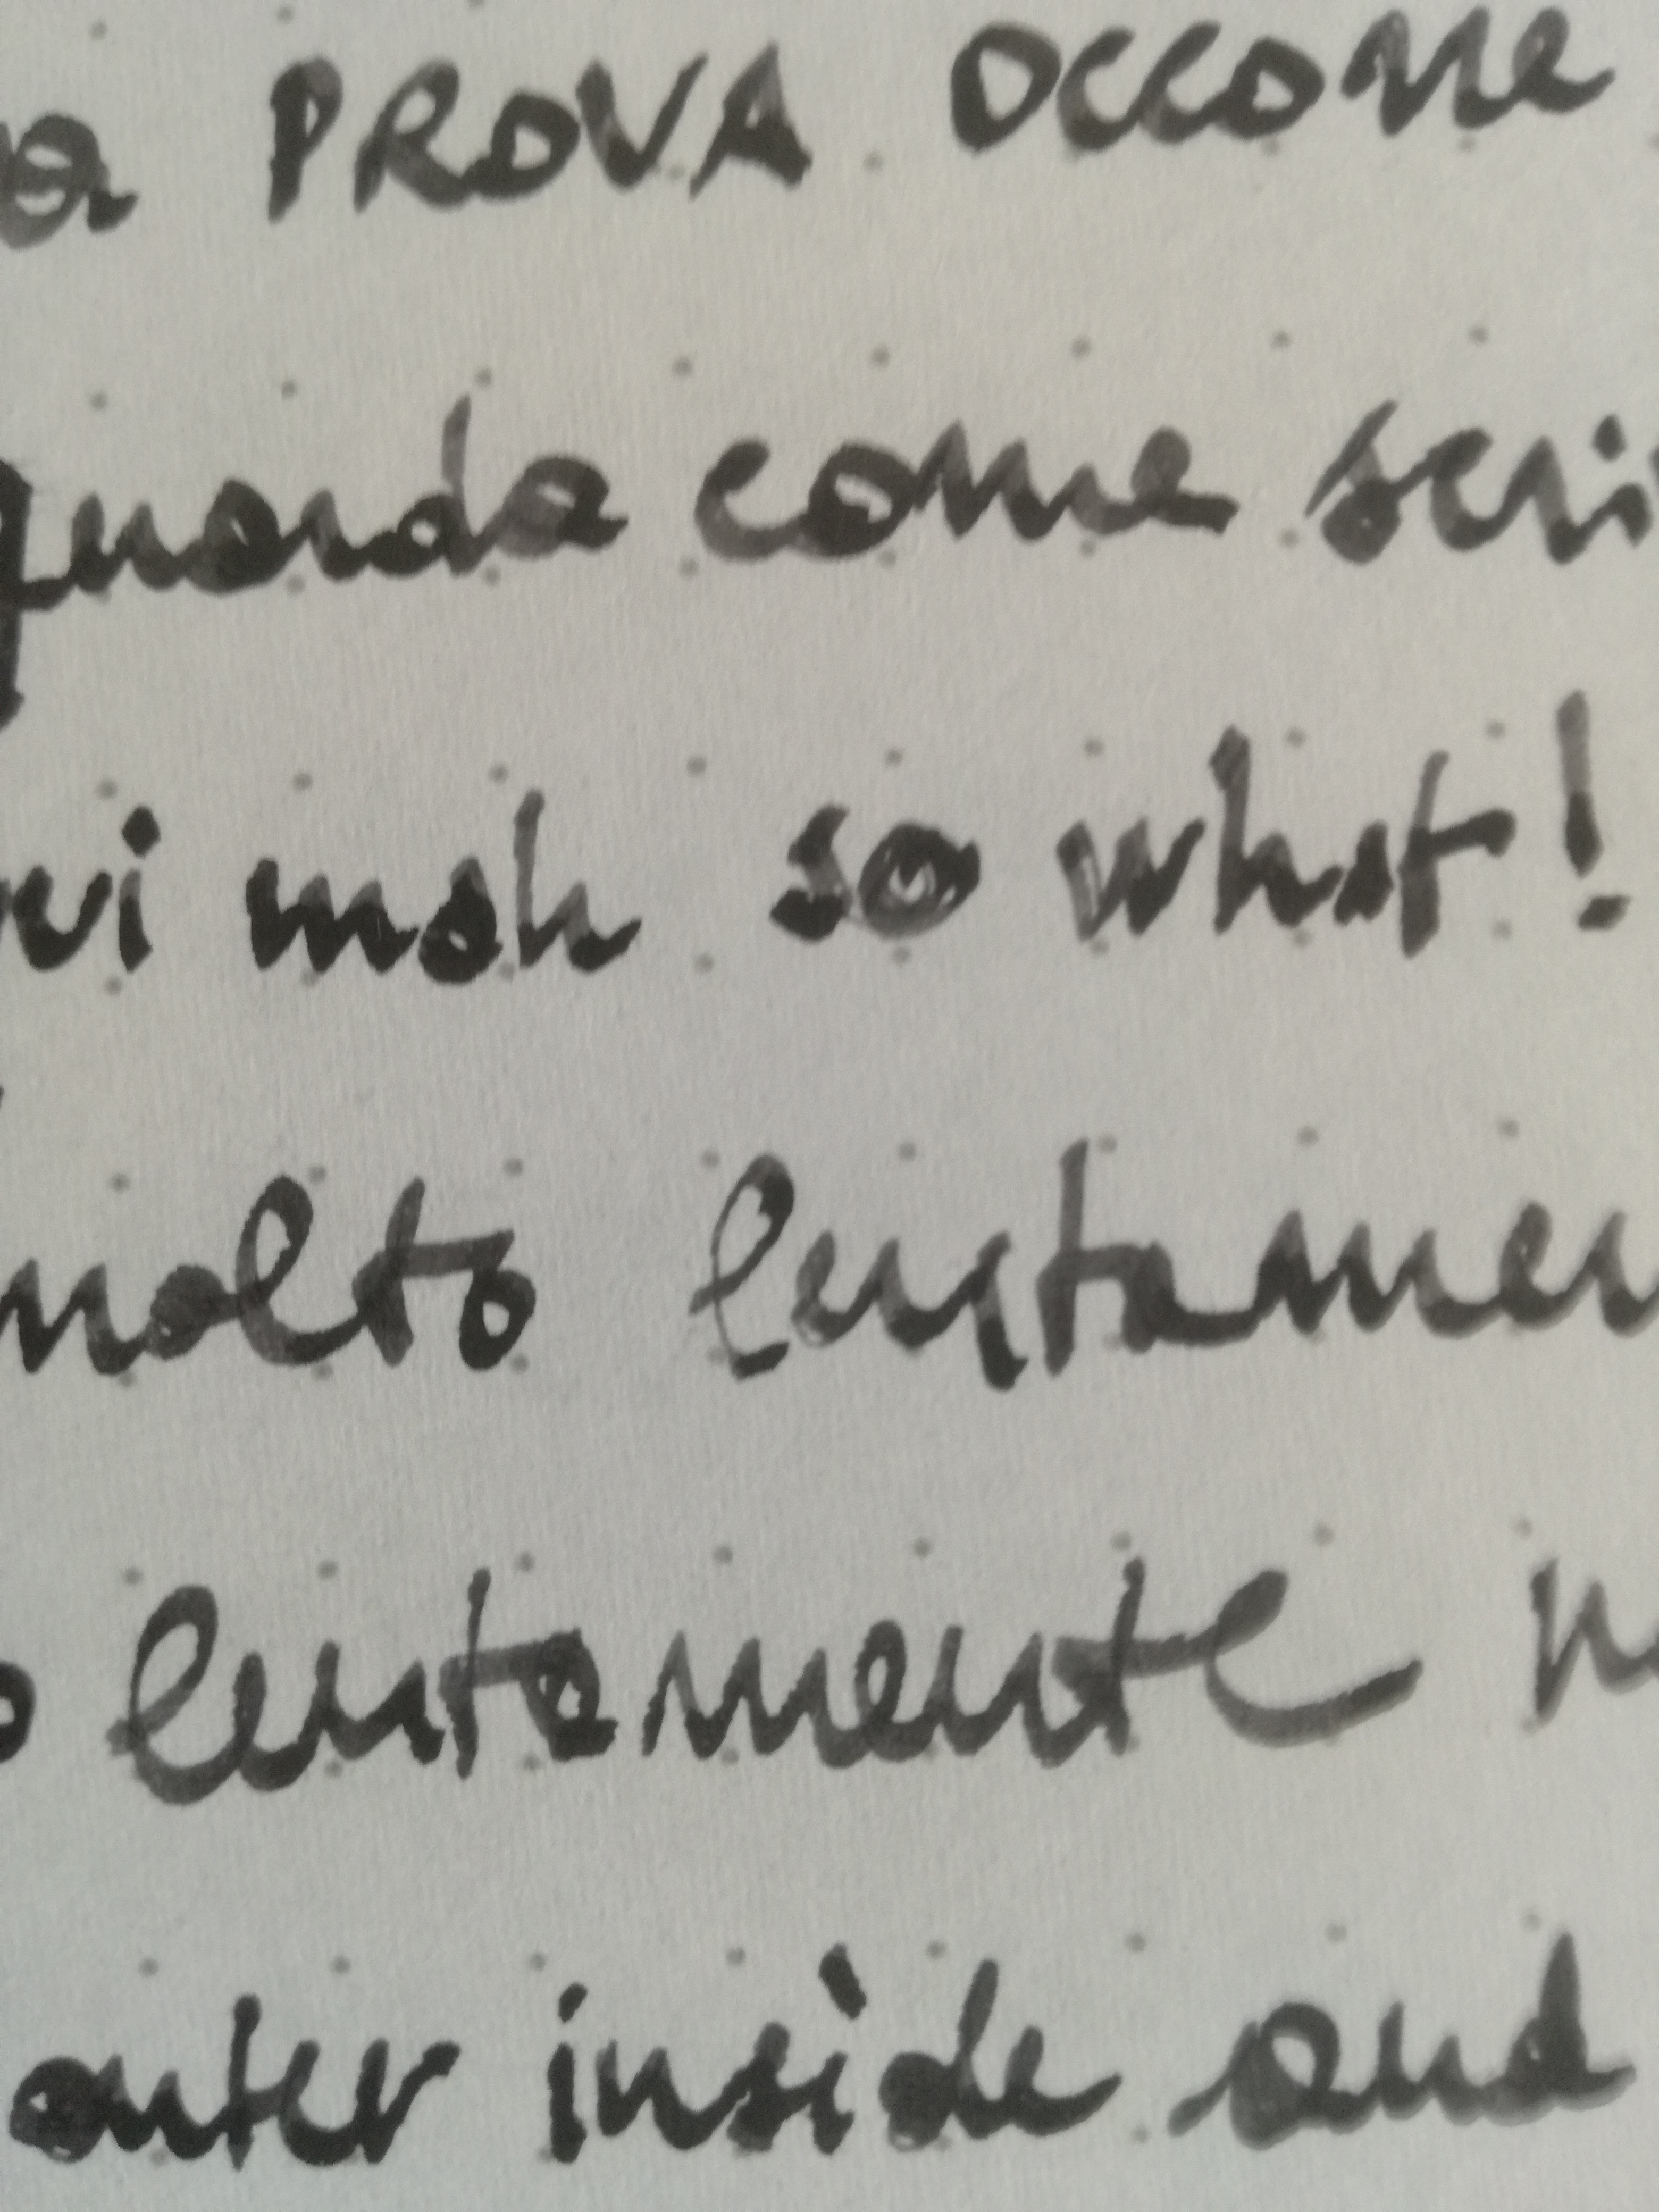 a PROVA occorre
guarda come scri
vi mah so what!
molto lentamen
o lentamente m
outer inside and